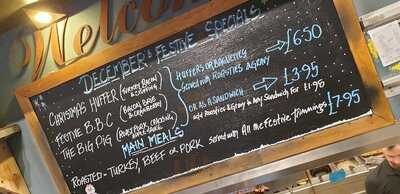 Welcome
DECEMBER & FESTIVE SPECIALS
CHRISTMAS HUFFER (TURKEY, BACON & STUFFING)
FESTIVE B.B.C (BACON, BRIE & CRANBERRY)
THE BIG PIG (ROAST PORK, CRACKLING, APPLE SAUCE)
HUFFERS OR BAGUETTES
Served with ROASTIES & GRAVY → £6.50
OR AS A SANDWICH → £3.95
Add Roasties & Gravy to Any Sandwich For £1.95
MAIN MEALS
ROASTED - TURKEY, BEEF OR PORK Served with All the Festive Trimmings £7.95